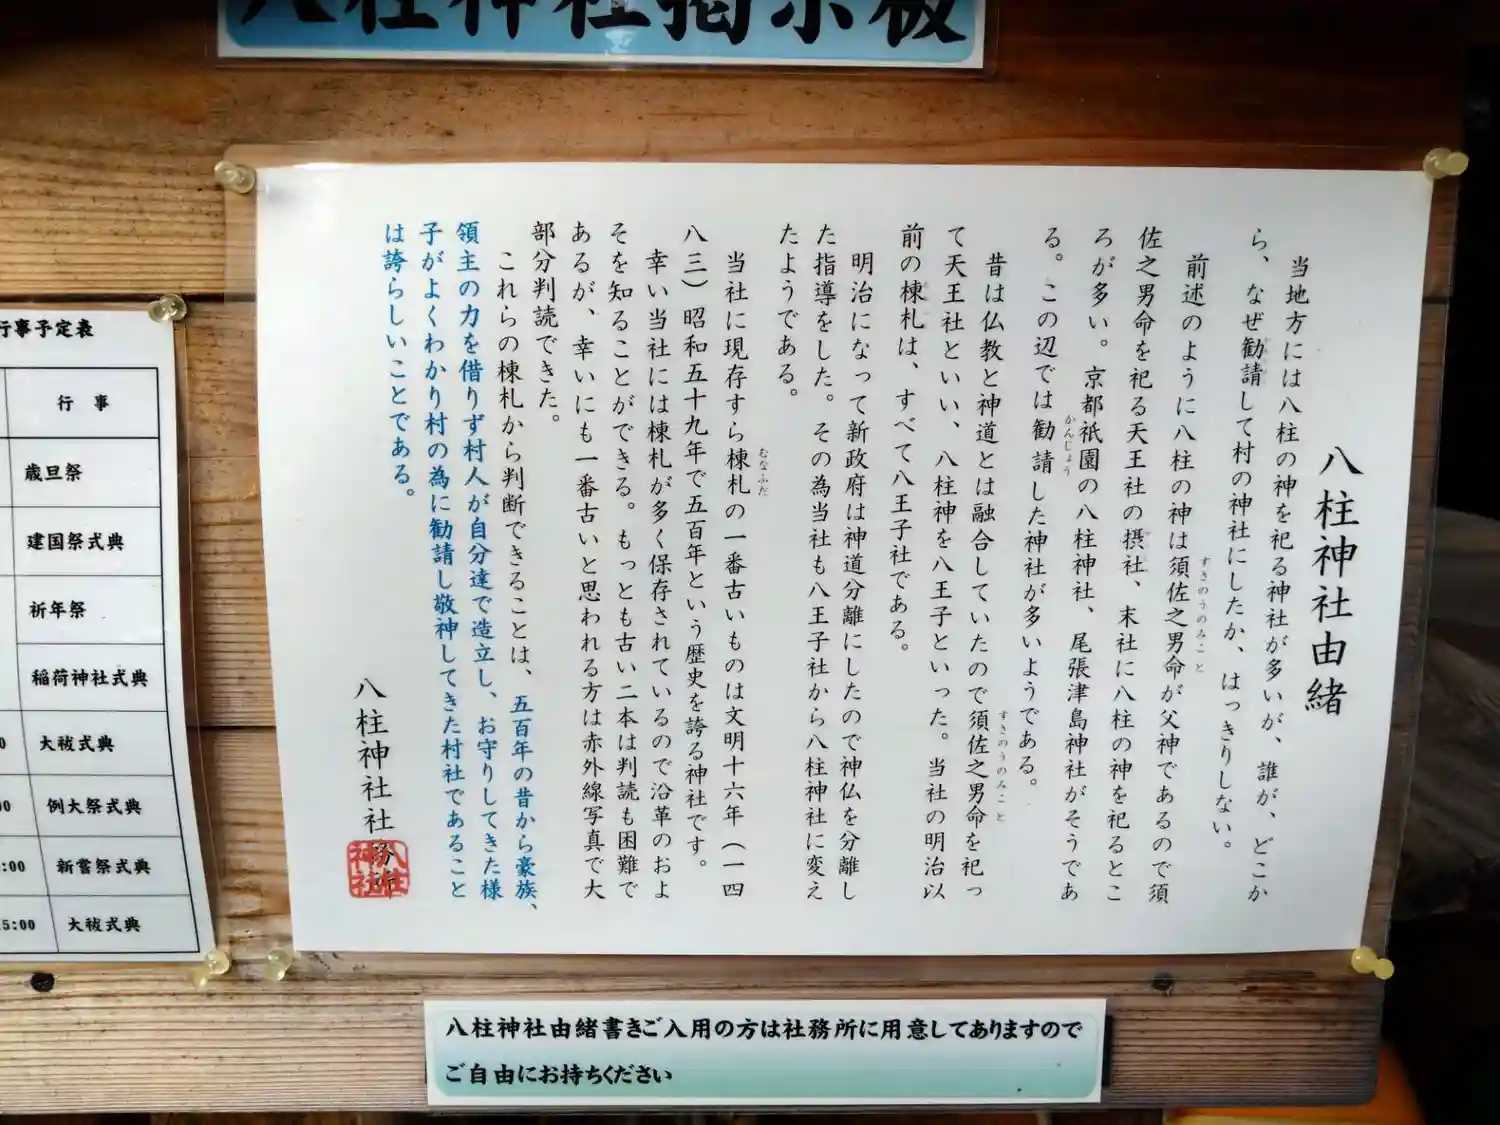 八柱神社掲示板
八柱神社由緒
当地方には八柱の神を祀る神社が多いが、誰が、どこか
ら、なぜ勧請して村の神社にしたか、はっきりしない。
前述のように八柱の神は須佐之男命が父神であるので須
すさのうのみこと
佐之男命を祀る天王社の摂社、末社に八柱の神を祀るとこ
ろが多い。京都祇園の八柱神社、尾張津島神社がそうであ
る。この辺では勧請した神社が多いようである。
かんじょう
昔は仏教と神道とは融合していたので須佐之男命を祀っ
すさのうのみこと
て天王社といい、八柱神を八王子といった。当社の明治以
前の棟札は、すべて八王子社である。
明治になって新政府は神道分離にしたので神仏を分離し
た指導をした。その為当社も八王子社から八柱神社に変え
たようである。
当社に現存すら棟札の一番古いものは文明十六年（一四
むなふだ
八三）昭和五十九年で五百年という歴史を誇る神社です。
幸い当社には棟札が多く保存されているので沿革のおよ
そを知ることができる。もっとも古い二本は判読も困難で
あるが、幸いにも一番古いと思われる方は赤外線写真で大
部分判読できた。
これらの棟札から判断できることは、五百年の昔から豪族、
領主の力を借りず村人が自分達で造立し、お守りしてきた様
子がよくわかり村の為に勧請し敬神してきた村社であること
は誇らしいことである。
八柱神社社務所
八柱神社
行事予定表
行 事
歳旦祭
建国祭式典
祈年祭
稲荷神社式典
0 大祓式典
00 例大祭式典
:00 新嘗祭式典
15:00 大祓式典
八柱神社由緒書きご入用の方は社務所に用意してありますので
ご自由にお持ちください